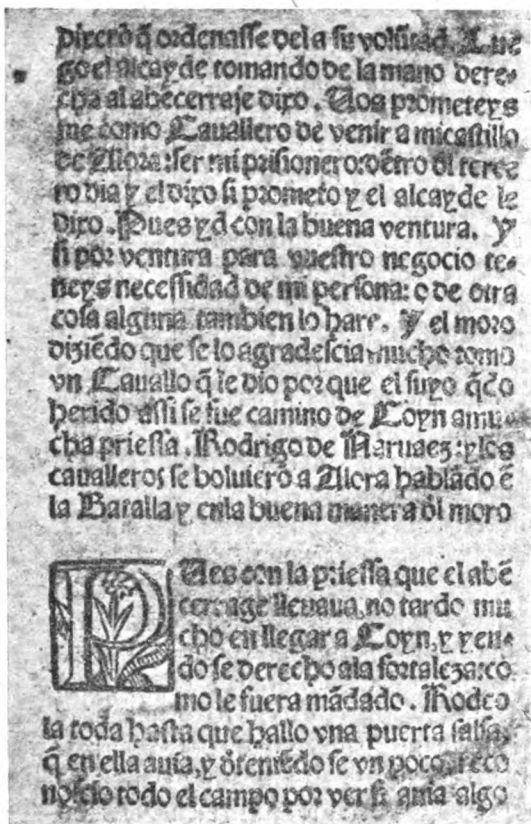 dixerõ q̃ ordenasse dela su volũtad. Lue
go el alcayde tomando de la mano dere⸗
cha al abẽcerraje dixo. Vos prometeys
me como Cauallero de venir a mi castillo
de Allora: ser mi prisionero: dẽtro ďl terce
ro dia y el dixo si prometo y el alcayde le
dixo. Pues yd con la buena ventura. Y
si por ventura para vuestro negocio te⸗
neys necessidad de mi persona: o de otra
cosa alguna tambien lo hare. Y el moro
diziẽdo que se lo agradescia mucho tomo
vn Cauallo q̃ le dio por que el suyo q̃do
herido assi se fue camino de Coyn a mu⸗
cha priessa. Rodrigo de Naruaez: y los
caualleros se boluierõ a Alora hablãdo ẽ
la Batalla y enla buena manera ďl moro
PUes con la priessa que el abẽ
cerrage lleuaua, no tardo mu
cho en llegar a Coyn, y yen⸗
do se derecho ala fortaleza: co
mo le fuera mãdado. Rodeo
la toda hasta que hallo vna puerta falsa,
q̃ en ella auia, y ďteniẽdo se vn poco, reco
noscio todo el campo por ver si auia algo